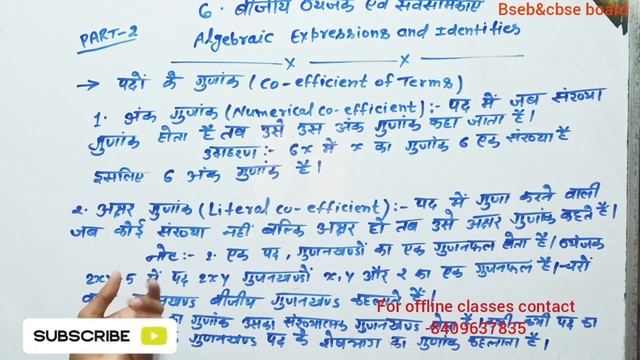 6. बीजीय व्यंजक एवं सर्वसमिकाएँ
Bseb&cbse board
PART-2
Algebraic Expressions and Identities
→ पदों के गुणांक (co-efficient of Terms)
1. अंक गुणांक (Numerical co-efficient) :- पद में जब संख्या
गुणांक होता है तब उसे उस अंक गुणांक कहा जाता है।
उदाहरण :- 6x में x का गुणांक 6 एक संख्या है
इसलिए 6 अंक गुणांक है।
2. अक्षर गुणांक (Literal co-efficient) :- पद में गुणा करने वाली
जब कोई संख्या नहीं बल्कि अक्षर हो तब उसे अक्षर गुणांक कहते है।
नोट :- 1. एक पद, गुणनखण्डों का एक गुणनफल होता है। व्यंजक
5 में पद 2xy गुणनखण्डों x, y और 2 का एक गुणनफल है।
गुणनखण्ड बीजीय गुणनखण्ड कहलाते है।
For offline classes contact
का गुणांक उसका संख्यात्मक गुणनखण्ड होता है। पद का
8409637835
गुणनखण्ड पद के शेषभाग का गुणांक कहलाता है।
SUBSCRIBE